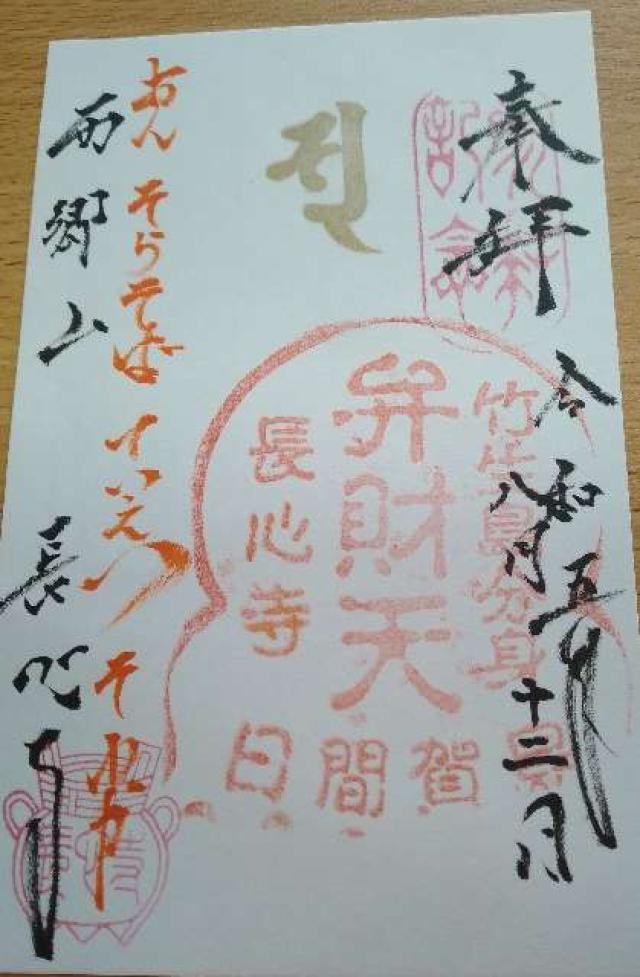 奉拝
令和五年
八月十二日
参拝記念
竹生島分身
弁財天
長心寺
日間賀島
おん そらそばていえい そわか
西郷山 長心寺